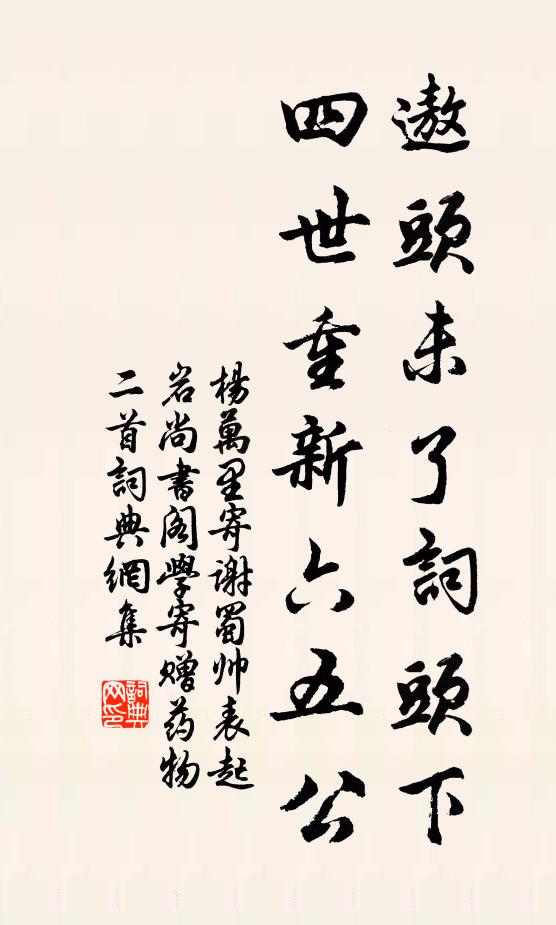 遨頭未了詞頭下
四世重新六五公
楊萬里寄谢蜀帅表起
岩尚書阁學寄赠药物
二首詞典網集
詞典
网印